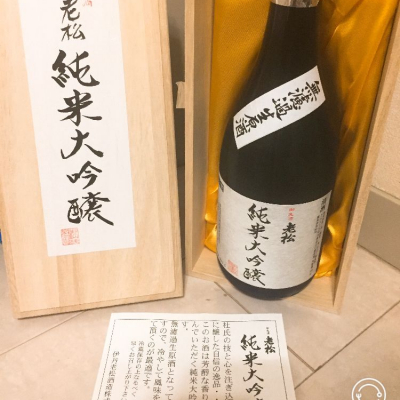 老松
純米大吟醸
無濾過生原酒
老松
純米大吟醸
老松
純米大吟醸
杜氏の技と心を注ぎ込
に醸した自信の逸品・
このお酒は芳醇な香り
んでいただく純米大吟
す。
無濾過生原酒となって
すので、冷やして風味を
て頂くのが最適です。
伊丹老松酒造株